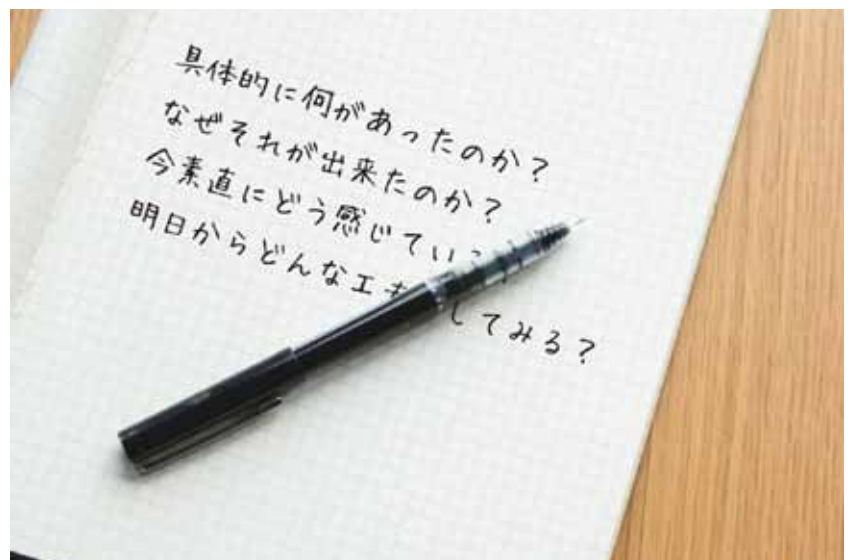 具体的に何があったのか?
なぜそれが出来たのか?
今素直にどう感じてい
明日からどんな工 してみる?